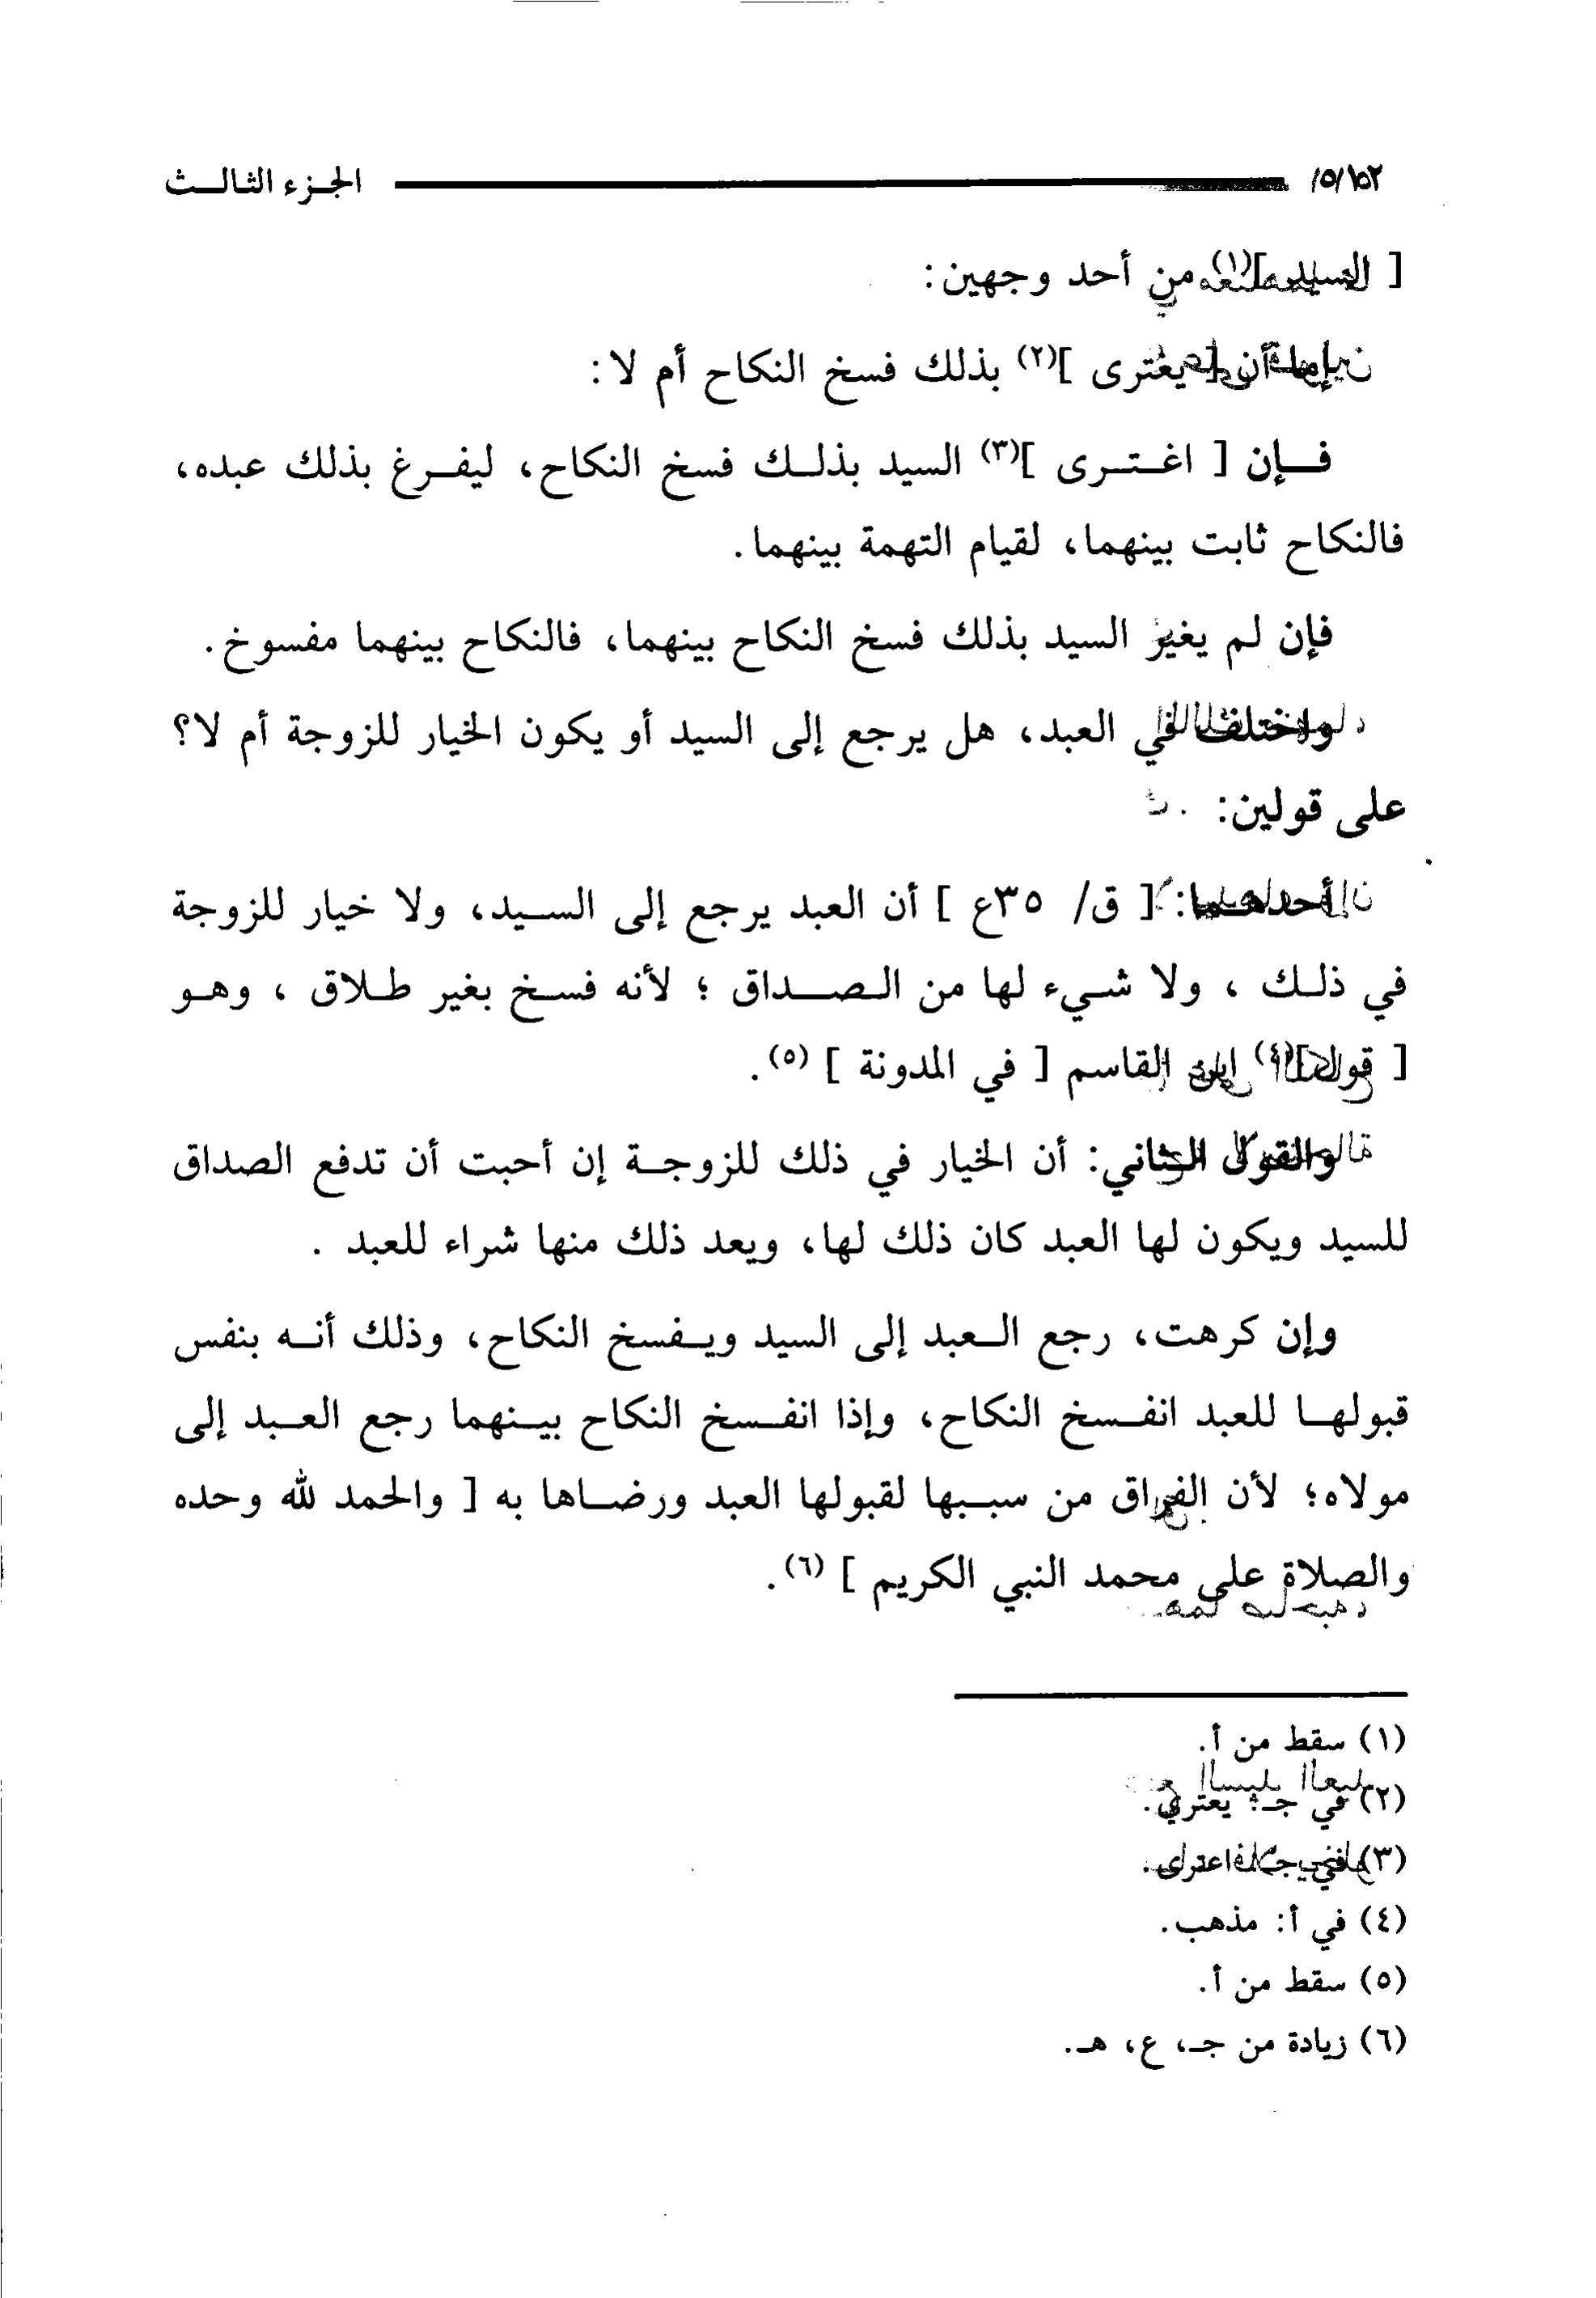 الجزء الثالث
[ السيد ](١) من أحد وجهين:
إما أن [ يغترى ](٢) بذلك فسخ النكاح أم لا:
فإن [ اغترى ](٣) السيد بذلك فسخ النكاح، ليفرغ بذلك عبده،
فالنكاح ثابت بينهما، لقيام التهمة بينهما.
فإن لم يغير السيد بذلك فسخ النكاح بينهما، فالنكاح بينهما مفسوخ.
واختلف في العبد، هل يرجع إلى السيد أو يكون الخيار للزوجة أم لا؟
على قولين:
أحدهما: [ ق/ ٣٥ع ] أن العبد يرجع إلى السيد، ولا خيار للزوجة
في ذلك ، ولا شيء لها من الصداق ؛ لأنه فسخ بغير طلاق ، وهو
[ قول ](٤) ابن القاسم [ في المدونة ] (٥).
والقول الثاني: أن الخيار في ذلك للزوجة إن أحبت أن تدفع الصداق
للسيد ويكون لها العبد كان ذلك لها، ويعد ذلك منها شراء للعبد .
وإن كرهت، رجع العبد إلى السيد ويفسخ النكاح، وذلك أنه بنفس
قبولها للعبد انفسخ النكاح، وإذا انفسخ النكاح بينهما رجع العبد إلى
مولاه؛ لأن الفراق من سببها لقبولها العبد ورضاها به [ والحمد لله وحده
والصلاة على محمد النبي الكريم ] (٦).
(١) سقط من أ.
(٢) في جـ: يعتري.
(٣) في جـ: اعترى.
(٤) في أ: مذهب.
(٥) سقط من أ.
(٦) زيادة من جـ، ع، هـ.